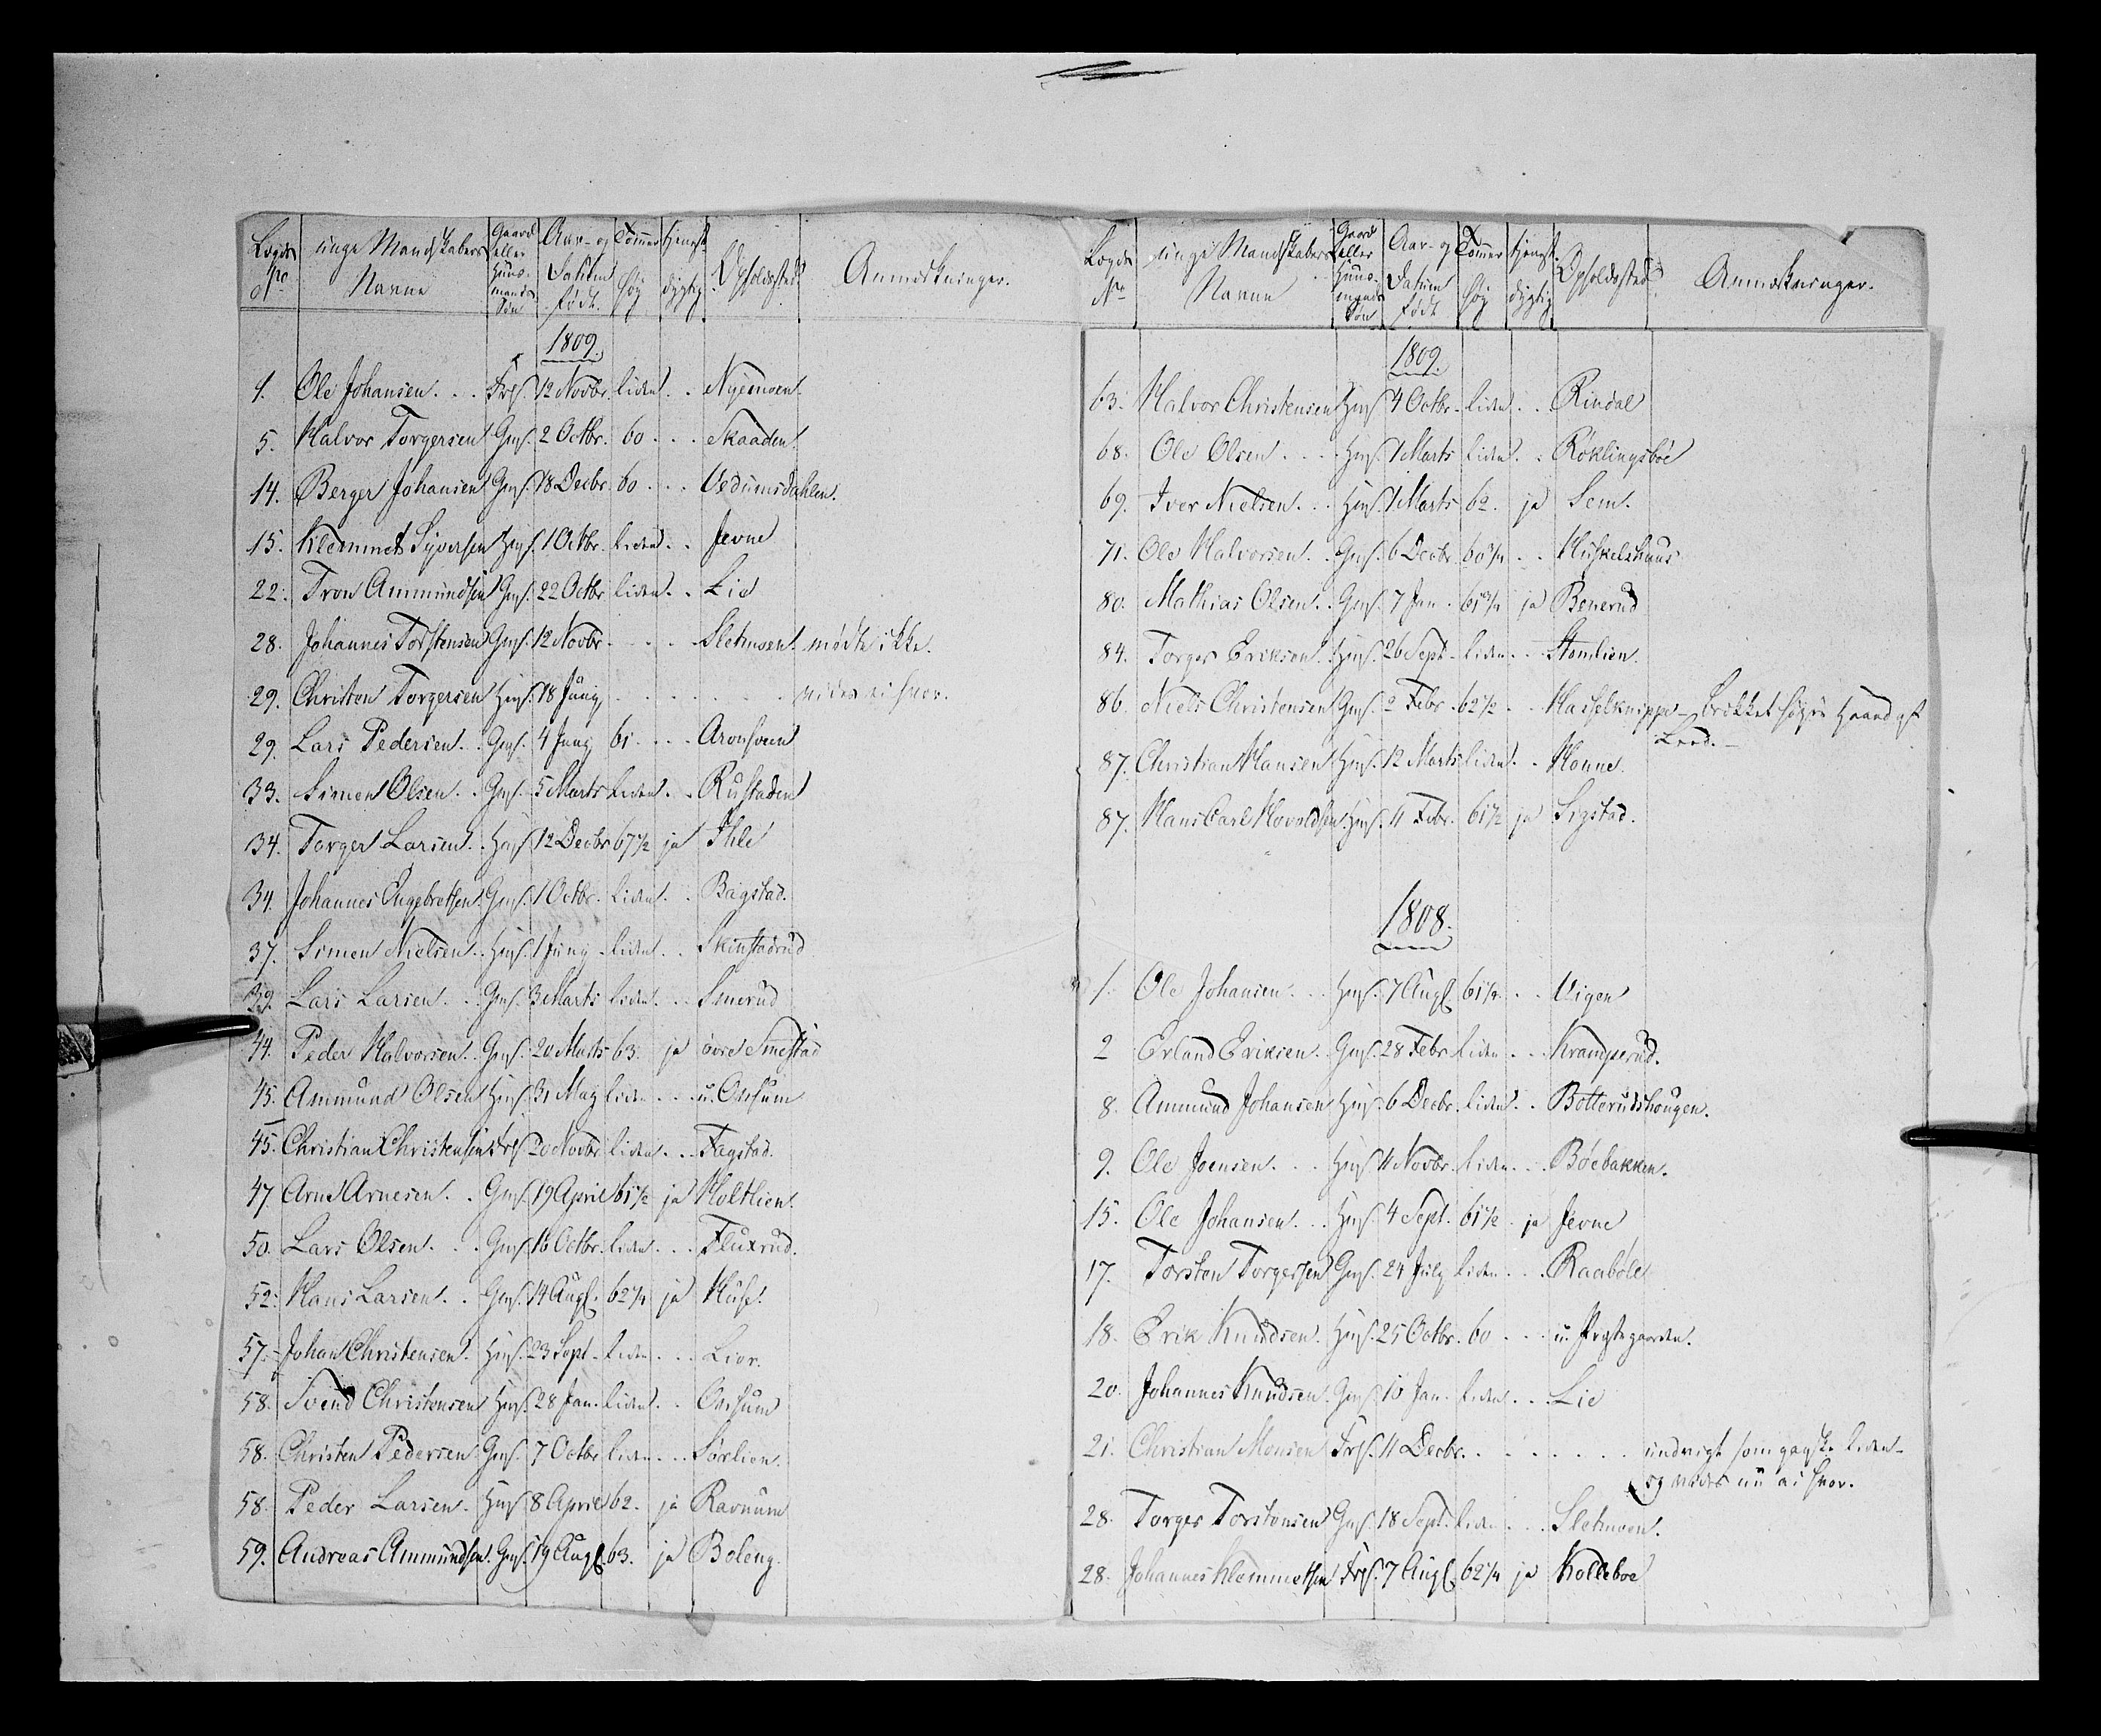 Logds No | unge Mandskabers Navne | Gaard eller Huusmands Søn | Aar- og Datum født. | Tommer høy | tjenstdygtig | Opholdssted. | Anmærkninger.
1809.
1. Ole Johansen . . . 12 Novbr. liden . . Nyemoen.
5. Halvor Torgersen Gms. 2 Octbr. 60 . . . Skaaden.
14. Berger Johansen Gms. 18 Decbr. 60 . . . Vedumsdahlen.
15. Klemmet Syversen Hms. 1 Octbr. liden . . Jevne
22. Tron Ammundsen Gms. 22 Octbr liden . . Lie
28. Johannes Torstensen Gms. 12 Novbr. . . . . Sletmoen. mødte ikke.
29. Christen Torgersen Hms. 18 Juny . . . . . . vides ei hvor.
29. Lars Pedersen . . Gms. 4 Juny 61 . . . . Aronsveen
33. Simen Olsen . . Gms. 5 Marts liden . . Rustaden
34. Torger Larsen . . Hms. 12 Decbr 67 1/2 ja Ihle
34. Johannes Engebretsen Gms. 1 Octbr. liden . . Bagstad.
37. Simen Nielsen . . Hms. 1 Juny liden . . Skinstadrud
39. Lars Larsen . . . Gms. 3 Marts liden . . . Smerud
44. Peder Halvorsen . . Gms. 20 Marts 63. ja øvre Smestad
45. Ammund Olsen Hms. 31 May liden . . . u. Onsum
45. Christian Christensen 20 Novbr liden . . . Fagstad.
47. Arne Arnesen . . Gms. 19 April 61 1/2 ja Holtlien.
50. Lars Olsen . . . Gms. 16 Octbr. liden . . . Fluxrud.
52. Hans Larsen . . Gms. 14 Augs. 62 1/4 ja Huse.
57. Johan Christensen. Hms. 23 Sept. liden . . . Lier.
58. Svend Christensen Hms. 28 Jan. liden . . Onsum
58. Christen Pedersen Gms. 7 Octbr liden . . . Sørlien.
58. Peder Larsen . Hms. 8 April 62 . ja Ravnum
59. Andreas Ammundsen. Gms. 19 Augs. 63. ja Boleng.
Logds No | unge Mandskabers Navne | Gaard eller Huusmands Søn | Aar- og Datum født | Tommer høy | tjenstdygtig | Opholdssted. | Anmærkninger.
1809.
63. Halvor Christensen Hms. 4 Octbr. liden . . Rindal
68. Ole Olsen . . . . Hms. 1 Marts liden . . Røklingsbøe
69. Iver Nielsen . . . Hms. 1 Marts 62. ja Sem.
71. Ole Halvorsen . . Gms. 6 Decbr. 60 3/4 . . Huskelshuus
80. Mathias Olsen . . Gms. 7 Jan . 61 3/4 ja Benerud
84. Torger Eriksen . Hms. 26 Sept. liden . . . Stomlien.
86. Niels Christensen Gms. 2 Febr. 62 1/2 . . Hasselknippe – brækket højre Haand af Leed. –
87. Christian Hansen Hms. 12 Marts liden . . Honne.
87. Hans Carl Hovoldsen. Hms. 11 Febr. 61 1/2 ja Sigstad.
1808.
1. Ole Johansen . . . Hms. 7 Augs. 61 1/4 . . Vigen
2 Erland Eriksen . Gms. 28 Febr. liden . . . Kramperud.
8. Ammund Johansen Hms. 6 Decbr. liden . . Botterudshougen.
9. Ole Joensen . . . Hms. 11 Novbr. liden . . . Bøebakken.
15. Ole Johansen . . . Hms. 4 Sept. 61 1/2 ja Jevne
17. Torsten Torgersen Gms. 24 July liden . . . Raabøle
18. Erik Knudsen. Hms. 25 Octbr. 60 . . . u. Prestegaarden.
20. Johannes Knudsen. Gms. 10 Jan. liden . . . Lie
21. Christian Monsen 11 Decbr. . . . . . . undvigt som ganske liden –
og vides nu ei hvor.
28. Torger Torstensen Gms. 18 Sept. liden . . . Sletmoen.
28. Johannes Klemmetsen 7 Augs. 62 1/4 ja Kolleboe